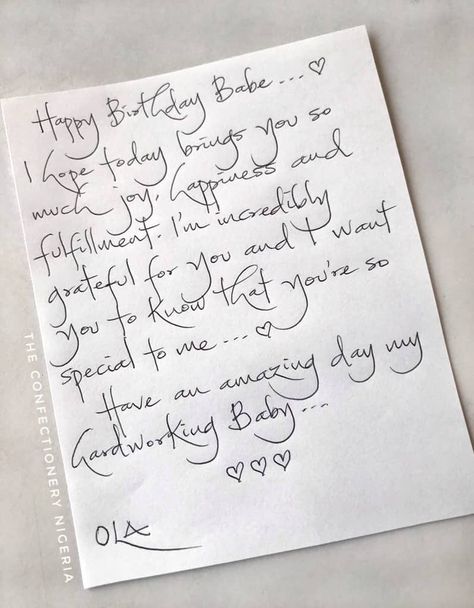 Happy Birthday Babe.... ♡
I hope today brings you so
much joy, happiness and
fulfillment. I'm incredibly
grateful for you and I want
you to know that you're so
special to me.... ♡
Have an amazing day my
hardworking Baby....
♡♡♡
OLA
THE CONFECTIONERY NIGERIA